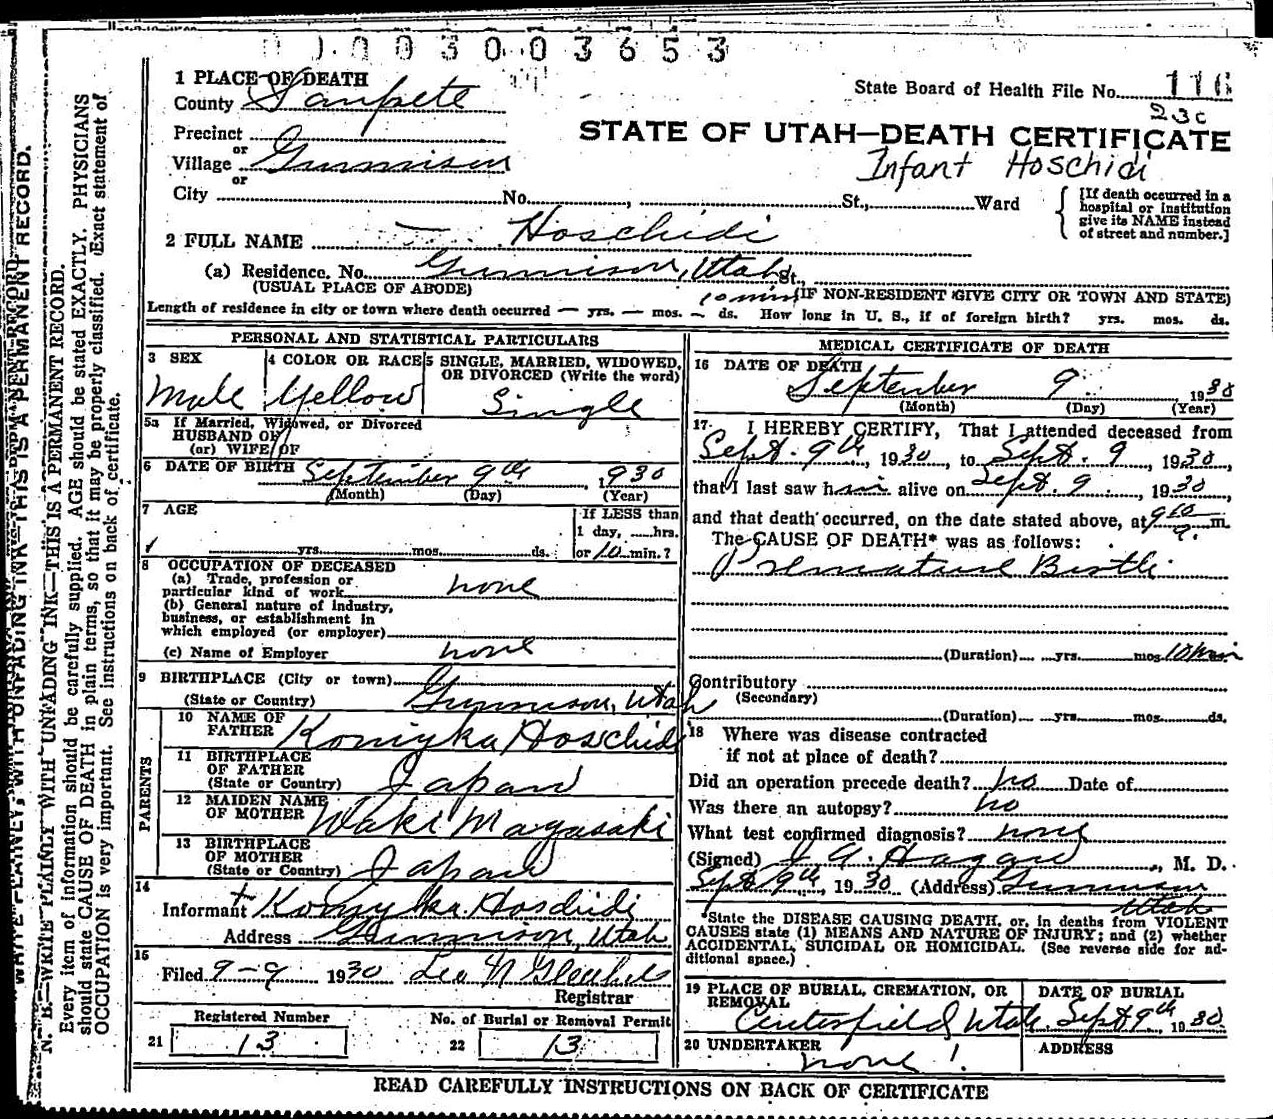 0 0 0 0 3 0 0 3 6 5 3
1 PLACE OF DEATH
County Sanpete
State Board of Health File No. 116
23c
Precinct
or
Village Gunnison
or
STATE OF UTAH—DEATH CERTIFICATE
Infant Hoschidi
City No. , St., Ward
[If death occurred in a
hospital or institution
give its NAME instead
of street and number.]
2 FULL NAME — Hoschidi
(a) Residence. No. Gunnison, Utah St.,
(USUAL PLACE OF ABODE) (IF NON-RESIDENT GIVE CITY OR TOWN AND STATE)
10 mins
Length of residence in city or town where death occurred — yrs. — mos. — ds. How long in U. S., if of foreign birth? yrs. mos. ds.
PERSONAL AND STATISTICAL PARTICULARS
3 SEX 4 COLOR OR RACE 5 SINGLE, MARRIED, WIDOWED,
OR DIVORCED (Write the word)
Male Yellow Single
5a If Married, Widowed, or Divorced
HUSBAND OF
(or) WIFE OF
6 DATE OF BIRTH September 9th, 1930
(Month) (Day) (Year)
7 AGE
If LESS than
1 day, hrs.
yrs. mos. ds. or 10 min.?
8 OCCUPATION OF DECEASED
(a) Trade, profession or
particular kind of work none
(b) General nature of industry,
business, or establishment in
which employed (or employer)
(c) Name of Employer none
9 BIRTHPLACE (City or town)
(State or Country) Gunnison, Utah
PARENTS
10 NAME OF
FATHER Komiyka Hoschidi
11 BIRTHPLACE
OF FATHER
(State or Country) Japan
12 MAIDEN NAME
OF MOTHER Waki Magasaki
13 BIRTHPLACE
OF MOTHER
(State or Country) Japan
14
Informant Komiyka Hoschidi
Address Gunnison, Utah
15
Filed 9-9 1930 Leo N
Registrar
Registered Number No. of Burial or Removal Permit
21 13 22 13
MEDICAL CERTIFICATE OF DEATH
16 DATE OF DEATH
September 9 1930
(Month) (Day) (Year)
17 I HEREBY CERTIFY, That I attended deceased from
Sept. 9th, 1930, to Sept. 9, 1930,
that I last saw him alive on Sept. 9, 1930,
and that death occurred, on the date stated above, at 9 10 a. m.
The CAUSE OF DEATH* was as follows:
Premature Birth
(Duration) yrs. mos. 10 min
Contributory
(Secondary)
(Duration) yrs. mos. ds.
18 Where was disease contracted
if not at place of death?
Did an operation precede death? no Date of
Was there an autopsy? no
What test confirmed diagnosis? none
(Signed) Hagan, M. D.
Sept 9th, 1930 (Address) Gunnison
Utah
*State the DISEASE CAUSING DEATH, or, in deaths from VIOLENT
CAUSES state (1) MEANS AND NATURE OF INJURY; and (2) whether
ACCIDENTAL, SUICIDAL OR HOMICIDAL. (See reverse side for ad-
ditional space.)
19 PLACE OF BURIAL, CREMATION, OR
REMOVAL
DATE OF BURIAL
Centerfield Utah Sept 9th 1930
20 UNDERTAKER ADDRESS
none!
READ CAREFULLY INSTRUCTIONS ON BACK OF CERTIFICATE
WRITE PLAINLY, WITH UNFADING INK—THIS IS A PERMANENT RECORD.
N. B.—WRITE PLAINLY WITH UNFADING INK—THIS IS A PERMANENT RECORD.
Every item of information should be carefully supplied. AGE should be stated EXACTLY. PHYSICIANS
should state CAUSE OF DEATH in plain terms, so that it may be properly classified. Exact statement of
OCCUPATION is very important. See instructions on back of certificate.